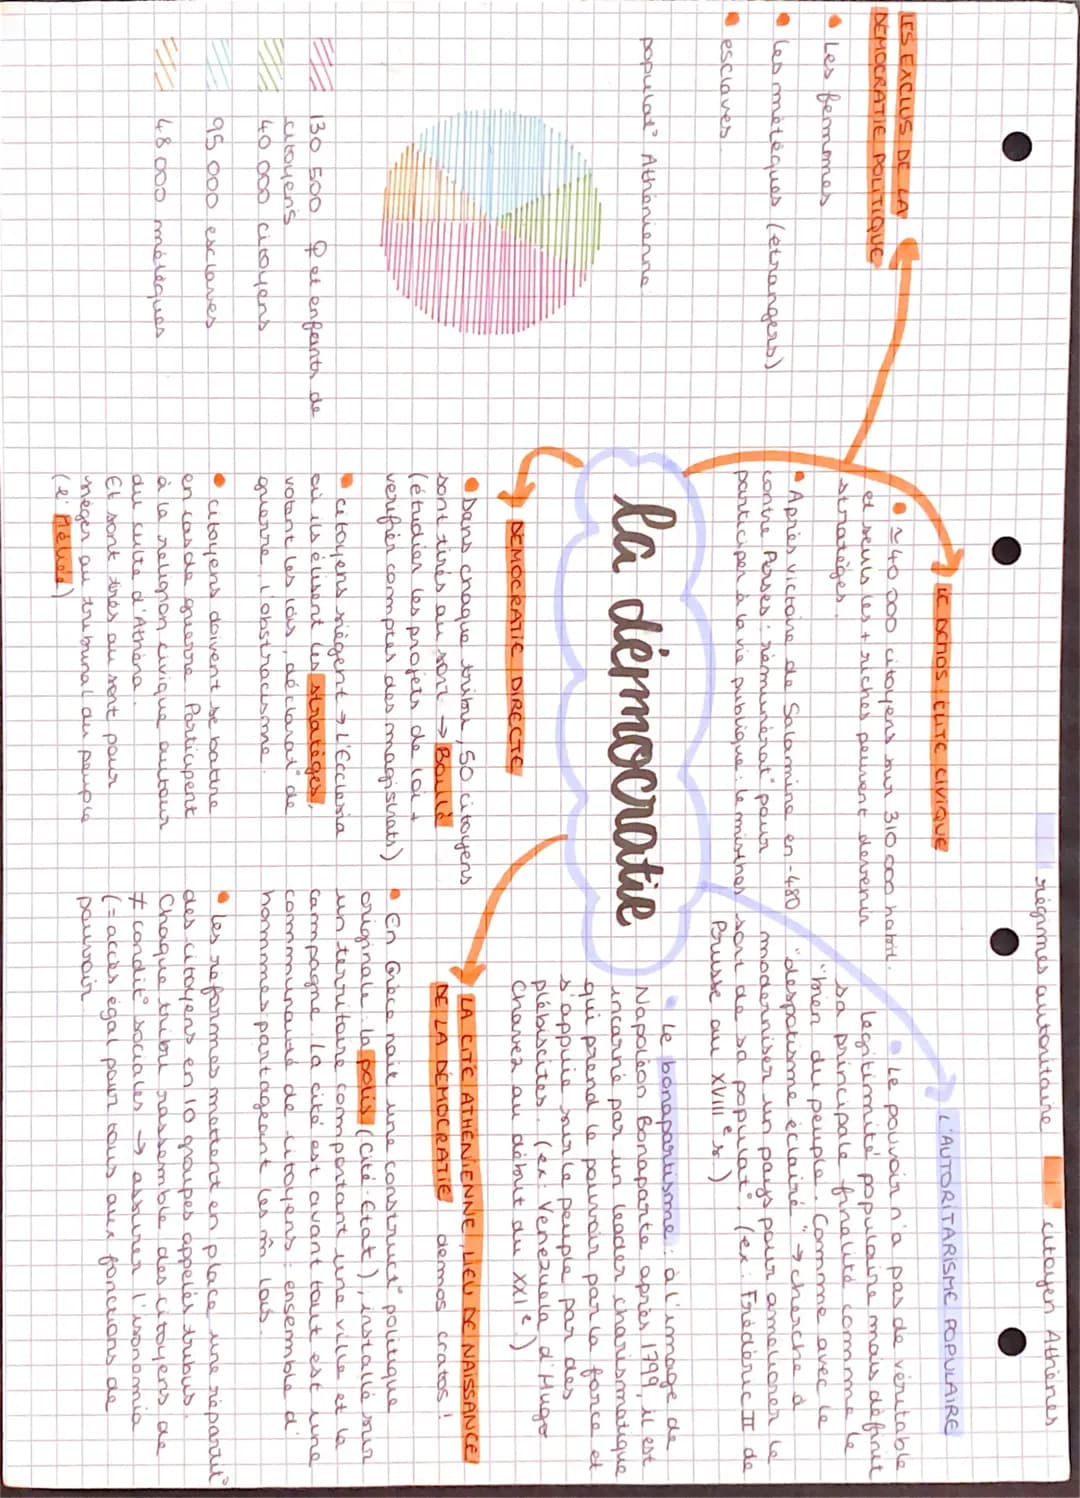 régimes autoritaire
citoyen Athènes
LES EXCLUS DE LA
DÉMOCRATIE POLITIQUE
• Les femmes
• Les métèques (étrangers)
• esclaves.
populat° Athénienne
130 500 ♀ et enfants de
citoyens
40 000 citoyens
95 000 esclaves
48 000 métèques
LE DEMOS : ELITE CIVIQUE
• ≃ 40 000 citoyens sur 310 000 habit.
et seuls les + riches peuvent devenir
stratèges.
• Après victoire de Salamine en -480
contre Perses : rémunérat° pour
participer à la vie publique : le misthos
L'AUTORITARISME POPULAIRE
• Le pouvoir n'a pas de véritable
légitimité populaire mais définit
sa principale finalité comme le
"bien du peuple". Comme avec le
"despotisme éclairé" → cherche à
moderniser un pays pour améliorer le
sort de sa populat°. (ex : Frédéric II de
Prusse au XVIIIe s.)
la démocratie
• Le bonapartisme : à l'image de
Napoléon Bonaparte après 1799, il est
incarné par un leader charismatique
qui prend le pouvoir par la force et
s'appuie sur le peuple par des
plébiscites. (ex : Venezuela d'Hugo
Chavez au début du XXIe.)
DEMOCRATIE DIRECTE
• Dans chaque tribu, 50 citoyens
sont tirés au sort → Boulè
(étudier les projets de loi +
vérifier comptes des magistrats)
• citoyens siègent → L'Ecclésia
où ils élisent les stratèges,
votent les lois, déclarat° de
guerre, l'obstracisme.
• citoyens doivent se battre
en cas de guerre. Participent
à la religion civique autour
du culte d'Athéna.
Et sont tirés au sort pour
siéger au tribunal du peuple
(l'Héliée)
LA CITÉ ATHÉNIENNE, LIEU DE NAISSANCE
DE LA DEMOCRATIE demos cratos !
• En Grèce naît une construct° politique
originale : la polis (Cité-Etat), installé sur
un territoire comportant une ville et la
campagne. La cité est avant tout est une
communauté de citoyens : ensemble d'
hommes partageant les m̂ lois.
• Les reformes mettent en place une répartit°
des citoyens en 10 groupes appelés tribus.
Chaque tribu rassemble des citoyens de
≠ condit° sociales → assurer l'isonomia
(= accès égal pour tous aux fonctions de
pouvoir.